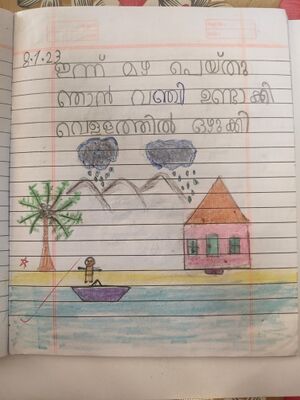 9.1.23
ഇന്ന് മഴ പെയ്തു
ഞാൻ വഞ്ചി ഉണ്ടാക്കി
വെള്ളത്തിൽ ഒഴുക്കി